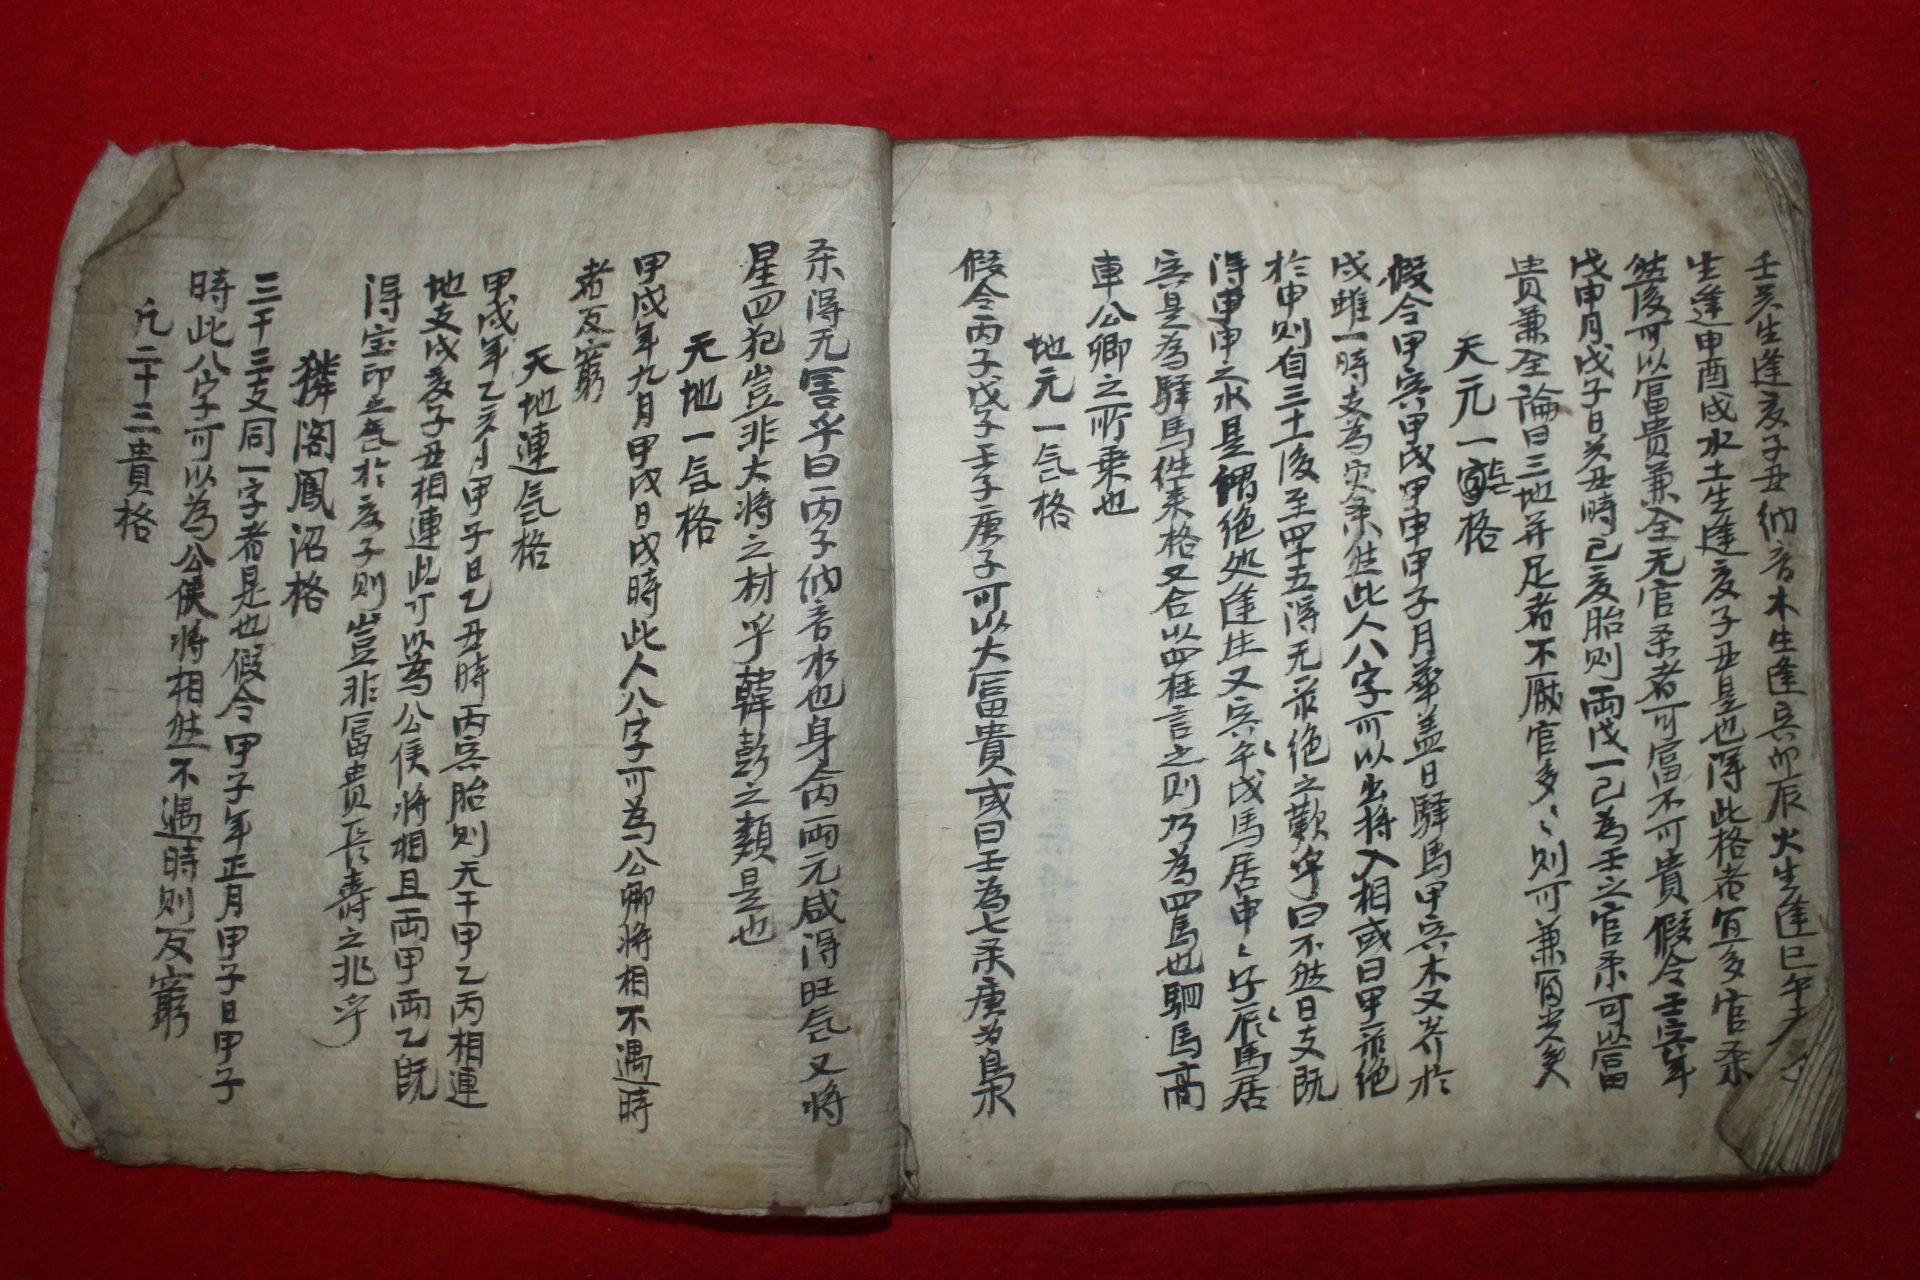 壬癸生逢亥子丑納音木生逢寅卯辰火生逢巳午
生逢申酉戌水土生逢亥子丑是也得此格者宜多官杀
然後可以富貴兼全无官杀者可富不可貴假令壬寅年
戊申月戊子日癸丑時己亥胎則兩戊一己為壬之官杀可以富
貴兼全論曰三地并足者不厭官多〻則可兼富貴矣
天元一氣格
假令甲寅甲戌甲申甲子月華盖日驛馬甲寅木又
戌雖一時支為灾杀然此人八字可以出将入相或曰甲木絶
於申則自三十後至四十五得无示絶之歎乎曰不然日支既
得申申之水是謂絶処逢生又寅午戌馬居申〻子辰馬居
寅是為驛馬徃来格又合以四柱言之則乃為四馬也駟馬高
車公卿之所乗也
地元一氣格
假令丙子戊子壬子庚子可以大富貴或曰壬為七杀庚為梟
杀得无害乎曰丙子納音水也身命兩元咸得旺気又将
星四犯豈非大将之材乎韓彭之類是也
天地一気格
甲戌年九月甲戌日戌時此人八字可為公卿将相不遇時
者反窮
天地連気格
甲戌年乙亥月甲子日乙丑時丙寅胎則天干甲乙丙相連
地支戌亥子丑相連此可以為公侯将相且兩甲兩乙既
得宝印之気於亥子則豈非富貴長壽之兆乎
獜閣鳳沼格
三干三支同一字者是也假令甲子年正月甲子日甲子
時此八字可以為公侯将相然不遇時則反窮
凡二十三貴格